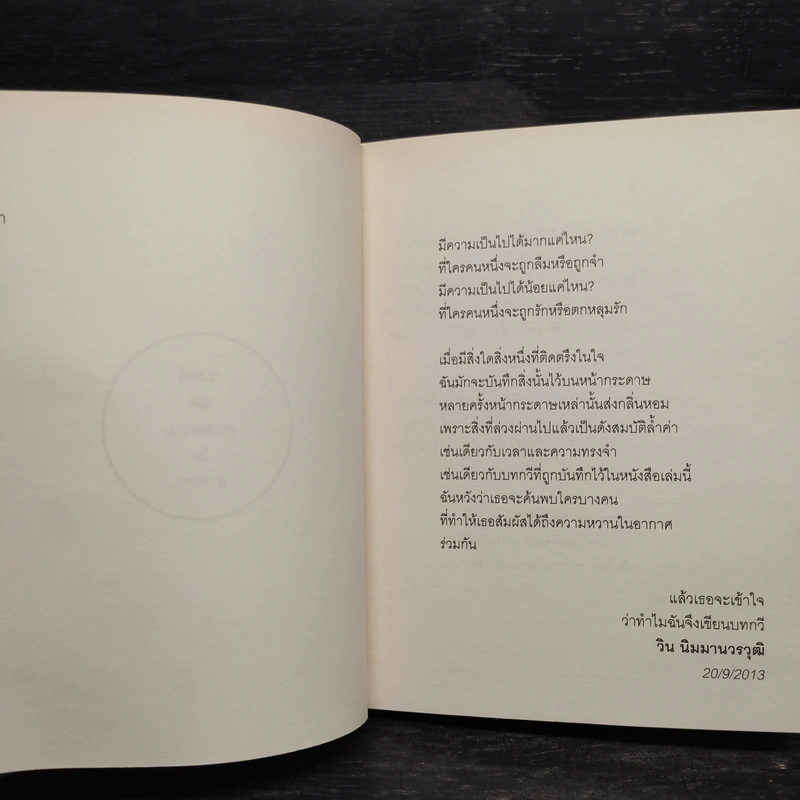 มีความเป็นไปได้มากแค่ไหน?
ที่ใครคนหนึ่งจะถูกลืมหรือถูกจำ
มีความเป็นไปได้น้อยแค่ไหน?
ที่ใครคนหนึ่งจะถูกรักหรือตกหลุมรัก
เมื่อมีสิ่งใดสิ่งหนึ่งที่ติดตรึงในใจ
ฉันมักจะบันทึกสิ่งนั้นไว้บนหน้ากระดาษ
หลายครั้งหน้ากระดาษเหล่านั้นส่งกลิ่นหอม
เพราะสิ่งที่ล่วงผ่านไปแล้วเป็นดังสมบัติล้ำค่า
เช่นเดียวกับเวลาและความทรงจำ
เช่นเดียวกับบทกวีที่ถูกบันทึกไว้ในหนังสือเล่มนี้
ฉันหวังว่าเธอจะค้นพบใครบางคน
ที่ทำให้เธอสัมผัสได้ถึงความหวานในอากาศ
ร่วมกัน
แล้วเธอจะเข้าใจ
ว่าทำไมฉันจึงเขียนบทกวี
วิน นิมมานวรวุฒิ
20/9/2013